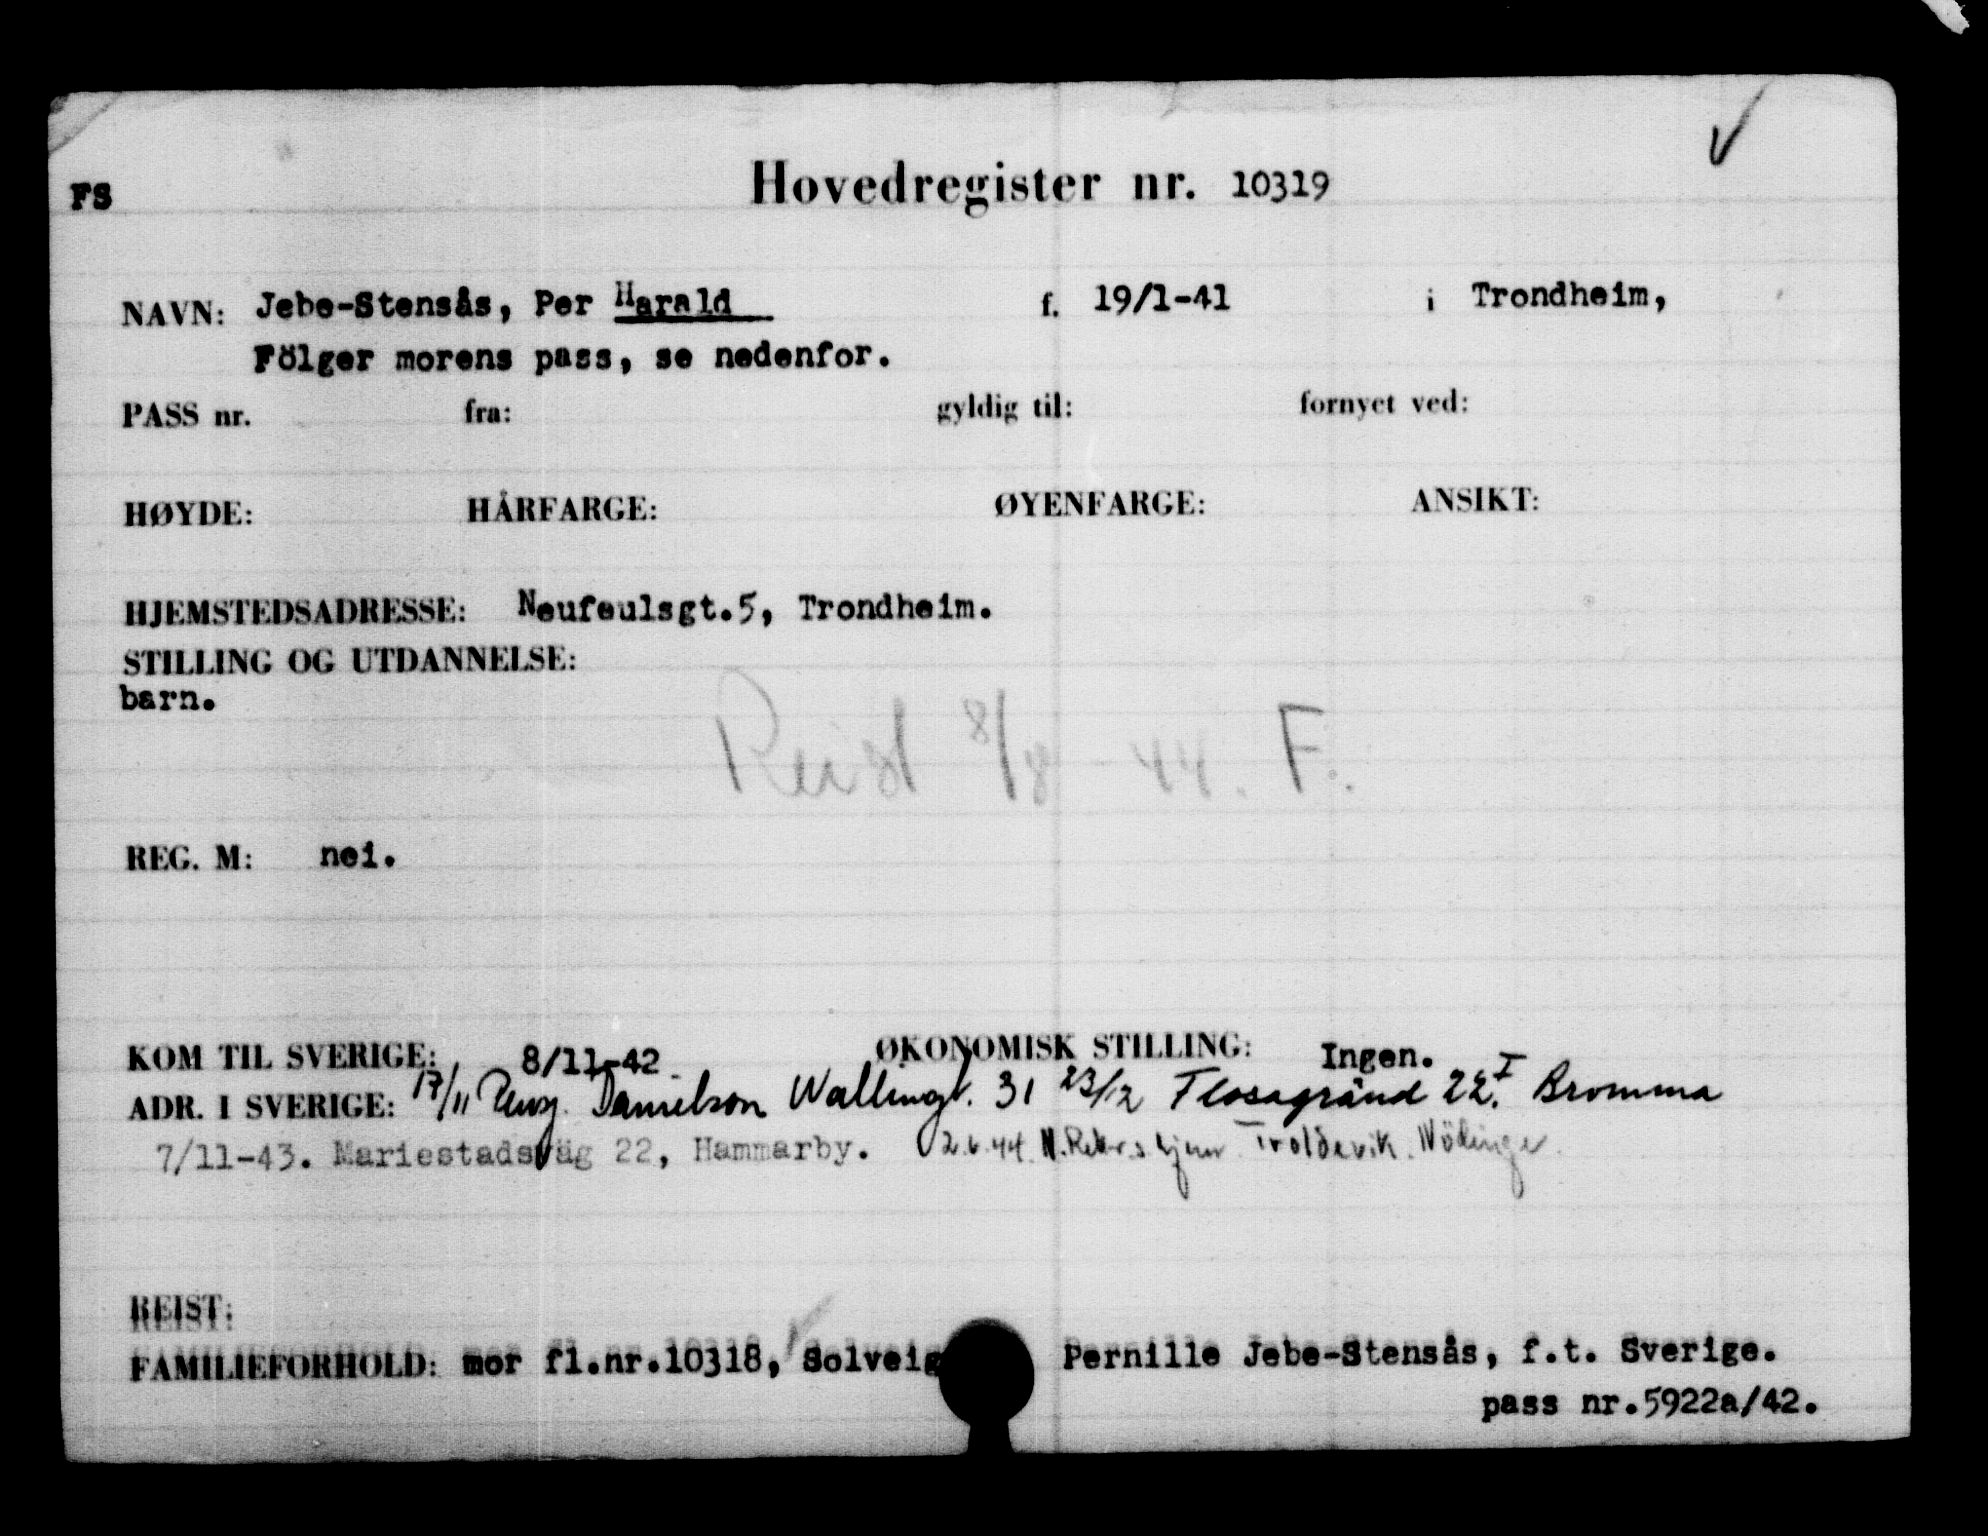 FS
Hovedregister nr. 10319
NAVN: Jebe-Stensås, Per Harald f. 19/1-41 i Trondheim,
Fölger morens pass, se nedenfor.
PASS nr. fra: gyldig til: fornyet ved:
HØYDE: HÅRFARGE: ØYENFARGE: ANSIKT:
HJEMSTEDSADRESSE: Neufeulsgt.5, Trondheim.
STILLING OG UTDANNELSE:
barn.
Reist 8/8 - 44. F.
REG. M: nei.
KOM TIL SVERIGE: 8/11-42 ØKONOMISK STILLING: Ingen.
ADR. I SVERIGE: 17/11 Pens. Danielson Wallingt. 31 23/12 Flosagränd 22 I Bromma
7/11-43. Mariestadsväg 22, Hammarby. 2.6.44 N. hjem Troldevik. Nödinge.
REIST:
FAMILIEFORHOLD: mor fl.nr.10318, Solveig Pernille Jebe-Stensås, f.t. Sverige.
pass nr.5922a/42.